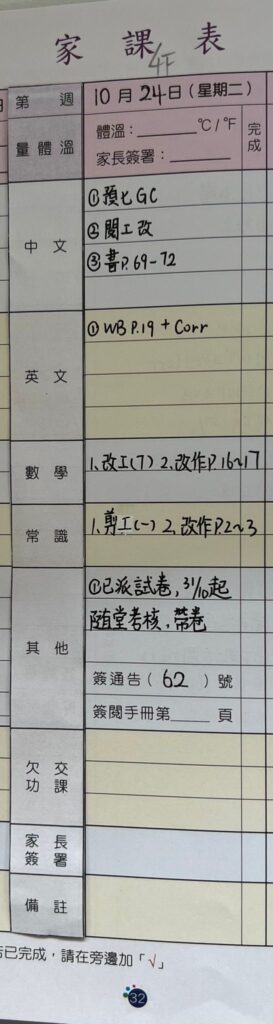 家課表
4F
第 週 10月24日(星期二) 完成
量體溫 體溫:______°C/°F
家長簽署:______
中文 ①預七GC
②閱工改
③書P.69-72
英文 ①WB P.19 + Corr
數學 1、改工(7) 2、改作P.16~17
常識 1、剪工(一) 2、改作P.2~3
其他 ①已派試卷,31/10起
隨堂考核,帶卷
簽通告(62)號
簽閱手冊第____頁
欠交功課
家長簽署
備註
若已完成,請在旁邊加「√」
32